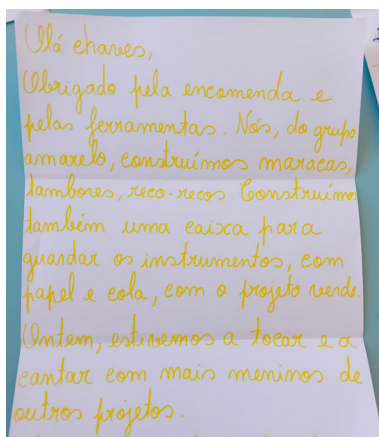 Olá chaves,
Obrigado pela encomenda e
pelas ferramentas. Nós, do grupo
amarelo, construímos maracas,
tambores, reco-recos Construímos
também uma caixa para
guardar os instrumentos, com
papel e cola, com o projeto verde.
Ontem, estivemos a tocar e a
cantar com mais meninos de
outros projetos.